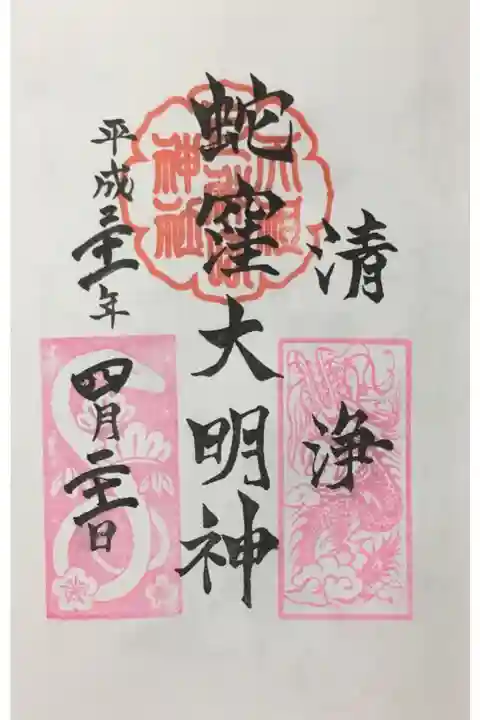 清浄
蛇窪大明神
平成三十一年
四月二十一日
天祖
神社